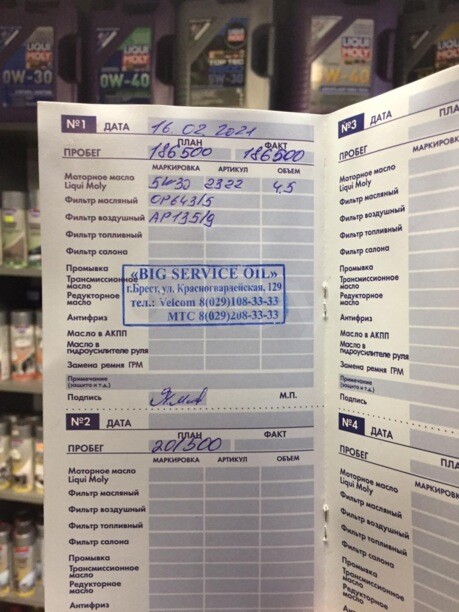 LIQUI MOLY
0W-30
LIQUI MOLY
0W-40
LIQUI MOLY
TOP TEC
5W-30
LIQUI MOLY
LIQUI MOLY
№1 ДАТА 16.02.2021
ПЛАН ФАКТ
ПРОБЕГ 186500 186500
МАРКИРОВКА АРТИКУЛ ОБЪЕМ
Моторное масло
Liqui Moly 5W30 2322 4,5
Фильтр масляный OP643/5
Фильтр воздушный AP135/9
Фильтр топливный
Фильтр салона
Промывка
Трансмиссионное
масло
Редукторное
масло
Антифриз
Масло в АКПП
Масло в
гидроусилителе руля
Замена ремня ГРМ
Примечание
(защита и т.д.)
Подпись М.П.
«BIG SERVICE OIL»
г.Брест, ул. Красногвардейская, 129
тел.: Velcom 8(029)108-33-33
МТС 8(029)208-33-33
№2 ДАТА
ПЛАН ФАКТ
ПРОБЕГ 201500
МАРКИРОВКА АРТИКУЛ ОБЪЕМ
Моторное масло
Liqui Moly
Фильтр масляный
Фильтр воздушный
Фильтр топливный
Фильтр салона
Промывка
Трансмиссионное
масло
Редукторное
масло
Антифриз
№3 ДАТА
ПРОБЕГ
Моторное масло
Liqui Moly
Фильтр масляный
Фильтр воздушный
Фильтр топливный
Фильтр салона
Промывка
Трансмиссионное
масло
Редукторное
масло
Антифриз
Масло в АКПП
Масло в
гидроусилителе руля
Замена ремня ГРМ
Примечание
(защита и т.д.)
Подпись
№4 ДАТА
ПРОБЕГ
Моторное масло
Liqui Moly
Фильтр масляный
Фильтр воздушный
Фильтр топливный
Фильтр салона
Промывка
Трансмиссионное
масло
Редукторное
масло
Антифриз